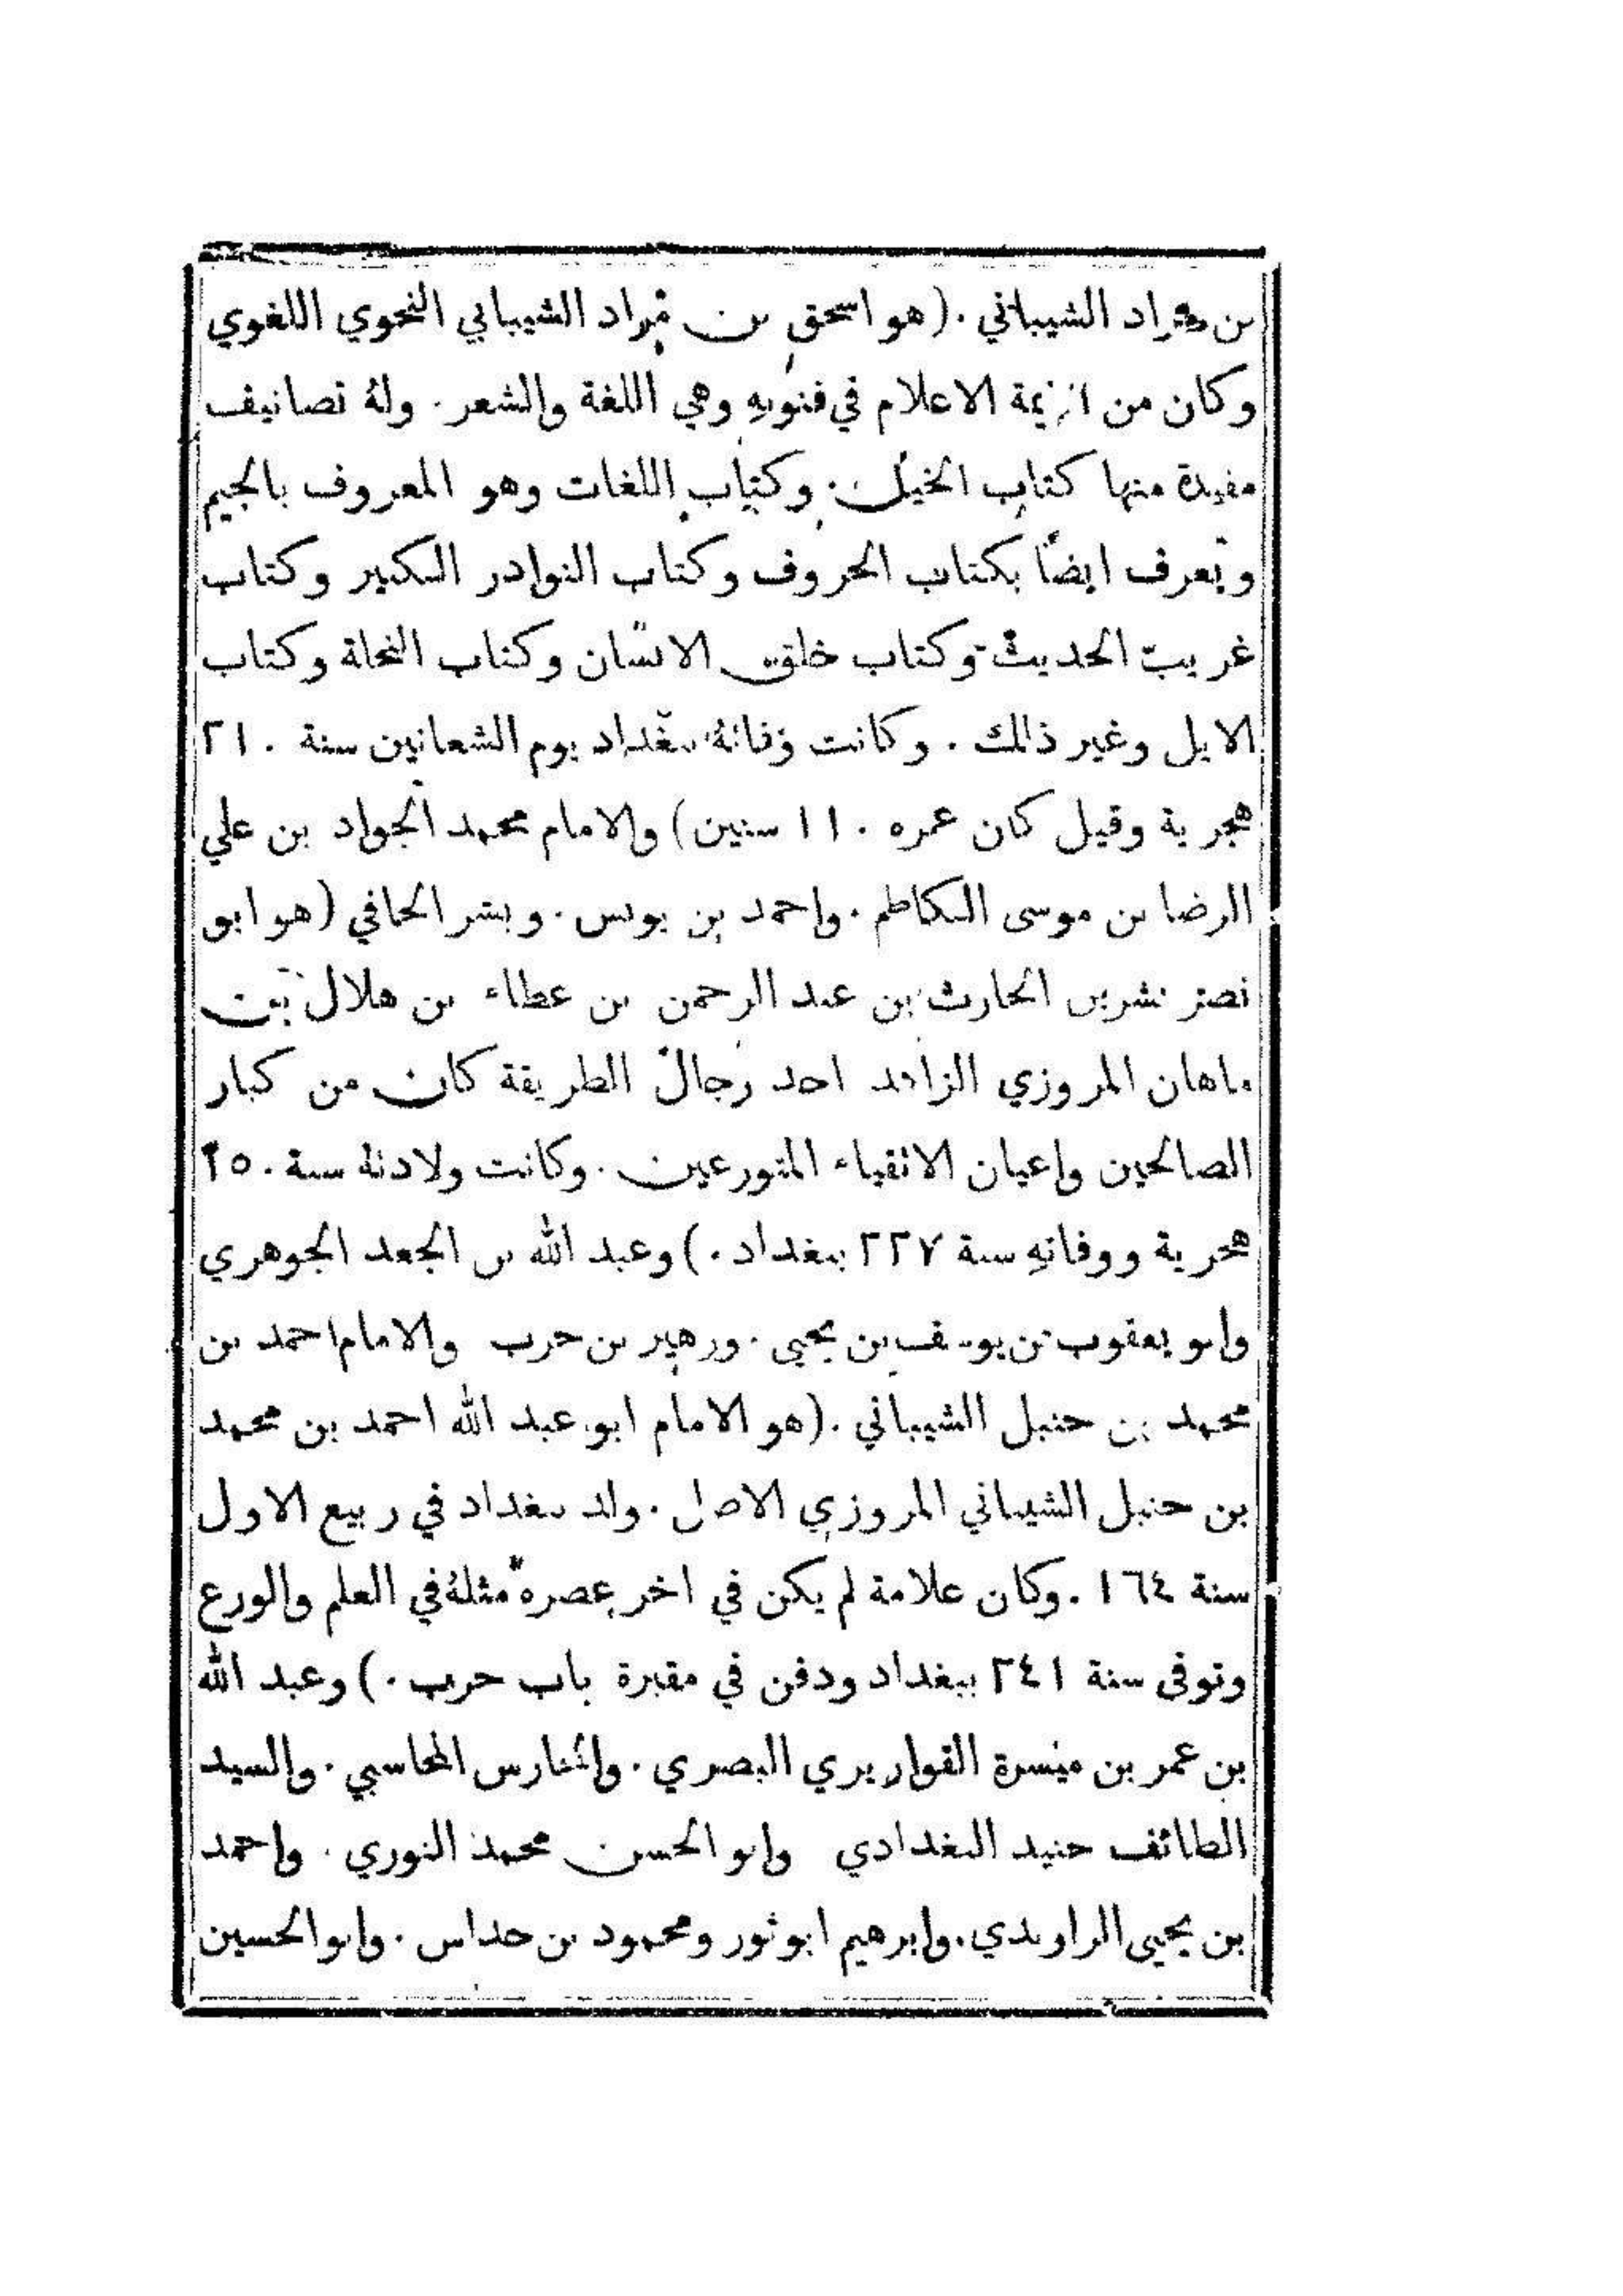 بن مراد الشيباني . (هو اسحق بن مراد الشيباني النحوي اللغوي
وكان من الايمة الاعلام في فنونهِ وهي اللغة والشعر . ولهُ تصانيف
مفيدة منها كتاب الخيل . وكتاب اللغات وهو المعروف بالجيم
ويعرف ايضًا بكتاب الحروف وكتاب النوادر الكبير وكتاب
غريب الحديث وكتاب خلق الانسان وكتاب النحلة وكتاب
الابل وغير ذلك . وكانت وفاتهُ ببغداد يوم الشعانين سنة ٢١٠
هجرية وقيل كان عمره ١١٠ سنين) والامام محمد الجواد بن علي
الرضا بن موسى الكاظم . واحمد بن يونس . وبشر الحافي (هو ابو
نصر بشر بن الحارث بن عبد الرحمن بن عطاء بن هلال بن
ماهان المروزي الزاهد احد رجال الطريقة كان من كبار
الصالحين واعيان الاتقياء المتورعين . وكانت ولادتهُ سنة ٢٥٠
هجرية ووفاتهِ سنة ٢٢٧ ببغداد .) وعبد الله بن الجعد الجوهري
وابو يعقوب بن يوسف بن يحيى . وزهير بن حرب والامام احمد بن
محمد بن حنبل الشيباني . (هو الامام ابو عبد الله احمد بن محمد
بن حنبل الشيباني المروزي الاصل . ولد ببغداد في ربيع الاول
سنة ١٦٤ . وكان علامة لم يكن في اخر عصره مثلهُ في العلم والورع
وتوفى سنة ٢٤١ ببغداد ودفن في مقبرة باب حرب .) وعبد الله
بن عمر بن ميسرة القواريري البصري . والحارس المحاسبي . والسيد
الطائف جنيد البغدادي وابو الحسن محمد النوري . واحمد
بن يحيى الراوندي . وابرهيم ابو ثور ومحمود بن خداس . وابو الحسين